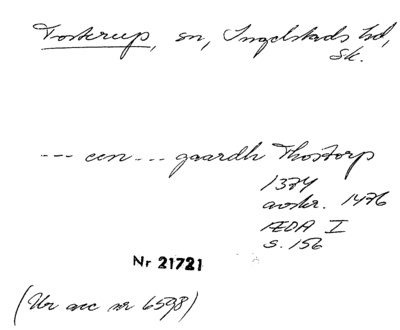 Tosterup, sn, Ingelstads hd,
Sk.
--- een --- gaardh Thostorp
1374
avskr. 1476
ÆDA I
s. 156
Nr 21721
(Ur acc nr 6598)